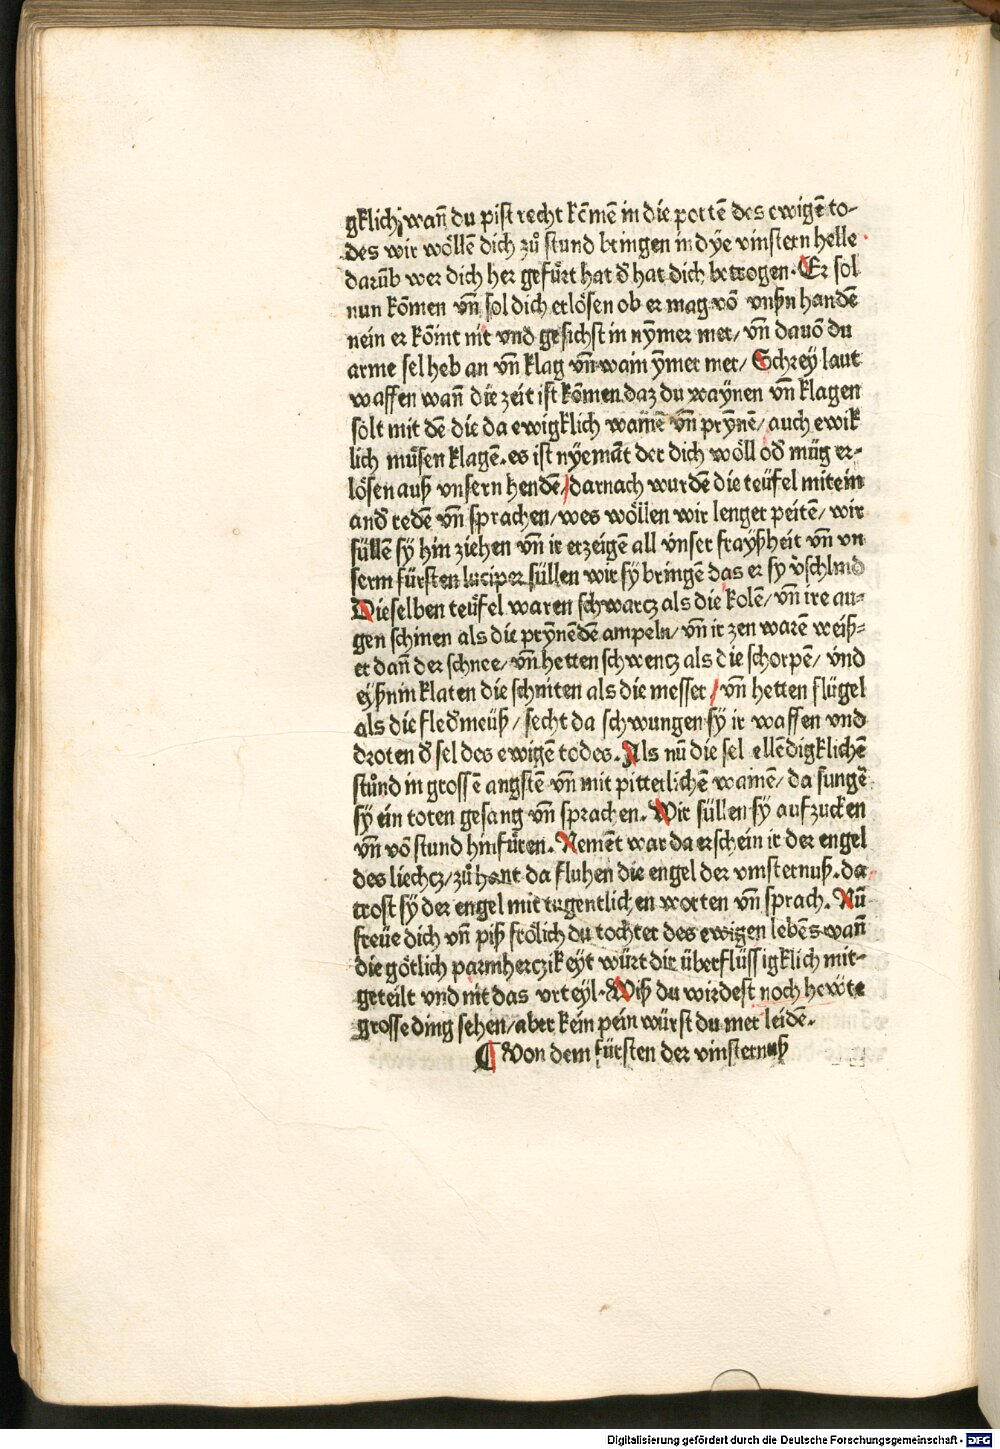 gklich, wañ du pist recht kōmē in die portē des ewigē to-
des wir wöllē dich zů stund bringen in dye vinstern helle
darūb wer dich her gefürt hat d̄ hat dich betrogen. Er sol
nun kōmen vñ sol dich erlösen ob er mag vō vnsn handē
nein er kōmt nit vnd gesichst in nȳmer mer/ vñ dauō du
arme sel heb an vñ klag vñ wain ȳmer mer/ Schrey laut
waffen wañ die zeit ist kōmen daz du waynen vñ klagen
solt mit dē die da ewigklich wainē vñ prȳnē/ auch ewik
lich müsen klagē. es ist nyemāt der dich wöll od̄ müg er-
lösen auß vnsern hendē/ darnach wurdē die teüfel mitein
and̄ redē vñ sprachen/ wes wöllen wir lenger peitē/ wir
süllē sy hin ziehen vñ ir erzeigē all vnser frayßheit vñ vn
serm fürsten luciper süllen wir sy bringē das er sy v̄schlind
Dieselben teüfel waren schwarcz als die kolē/ vñ ire au-
gen schinen als die prȳnēdē ampeln/ vñ ir zen warē weiß-
er dañ der schnee/ vñ hetten schwencz als die schorpē/ vnd
eyßnin klaten die schniten als die messer/ vñ hetten flügel
als die fled̄meüß/ secht da schwungen sy ir waffen vnd
droten d̄ sel des ewigē todes. Als nū die sel ellēdigklichē
stůnd in grossē angstē vñ mit pitterlichē wainē/ da sungē
sy ein toten gesang vñ sprachen. Wir süllen sy aufzucken
vñ vō stund hinfüren. Nemēt war da erschein ir der engel
des liechcz/ zů hant da fluhen die engel der vinsternuß. da
trost sy der engel mit tugentlichen worten vñ sprach. Nū
freüe dich vñ piß frölich du tochter des ewigen lebēs wañ
die götlich parmherczikeyt würt dir überflüssigklich mit-
geteilt vnd nit das vrteyl. Wiß du wirdest noch hewte
grosse ding sehen/ aber kein pein würst du mer leidē.
¶ Von dem fürsten der vinsternuß
Digitalisierung gefördert durch die Deutsche Forschungsgemeinschaft - DFG